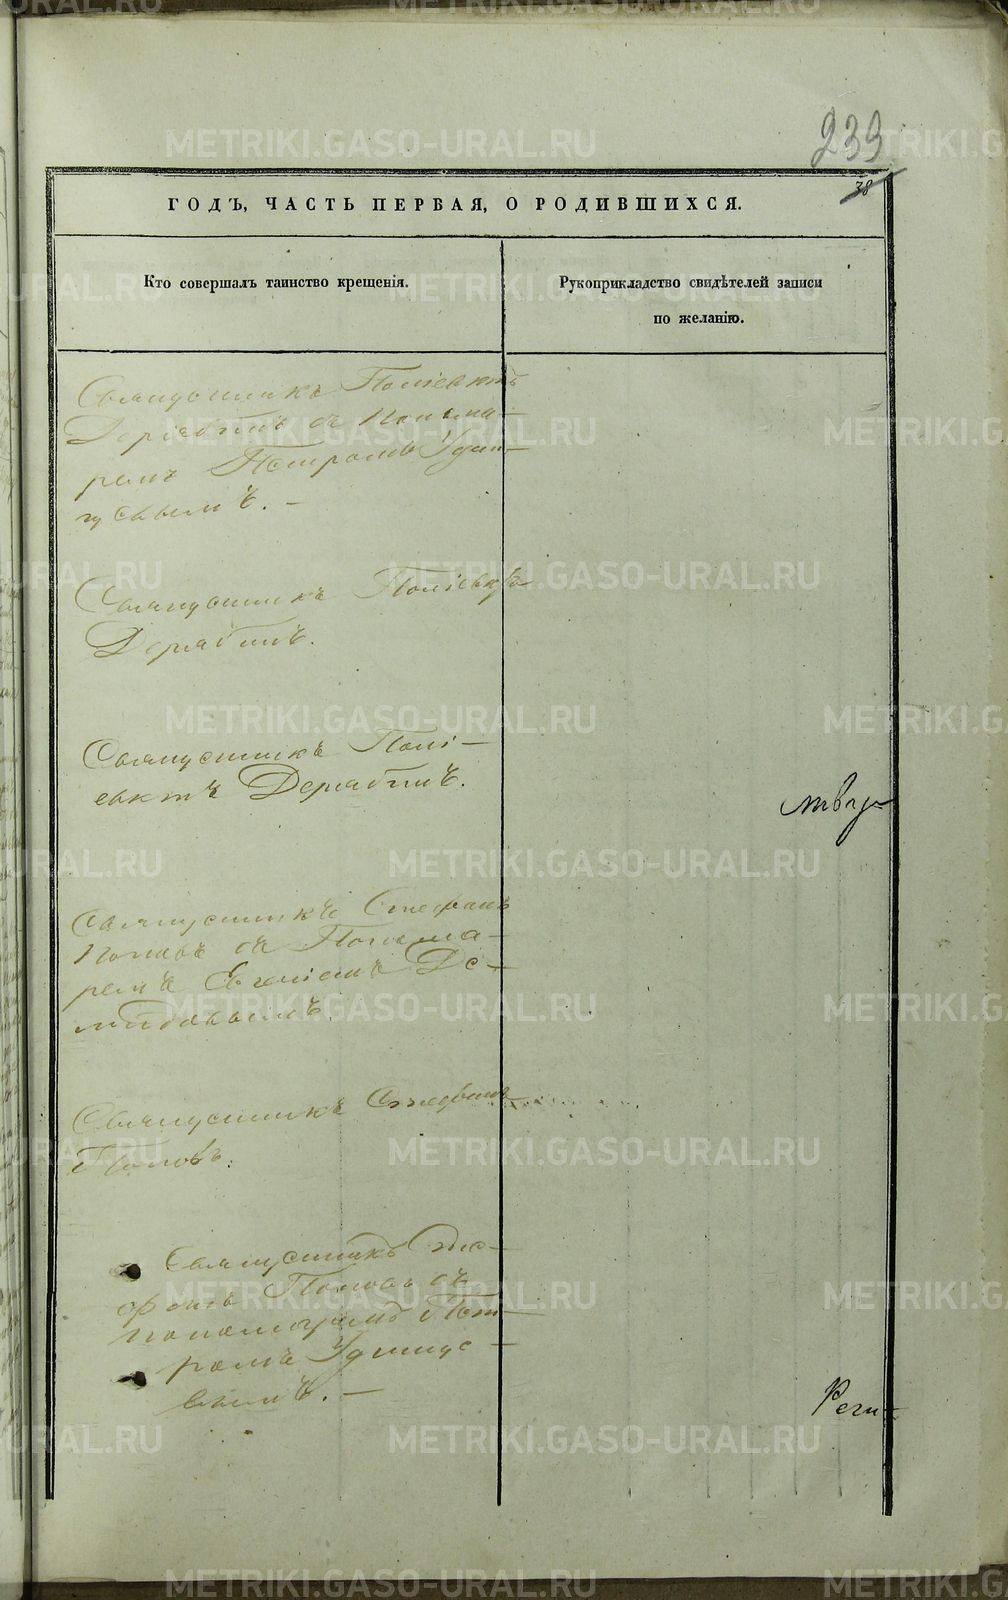 239
38
ГОДЪ, ЧАСТЬ ПЕРВАЯ, О РОДИВШИХСЯ.
Кто совершалъ таинство крещенія.
Рукоприкладство свидѣтелей записи
по желанію.
Священникъ Поліевктъ
Дерябинъ съ Понама-
ремъ Петромъ Удин-
цовымъ. —
Священникъ Поліевктъ
Дерябинъ.
Священникъ Полі-
евктъ Дерябинъ.
Священникъ Стефанъ
Поповъ съ Понама-
ремъ Евгеніемъ Де-
мидовымъ.
Священникъ Стефанъ
Поповъ.
Священникъ Сте-
фанъ Поповъ съ
понамаремъ Пет-
ромъ Удинцо-
вымъ. —
METRIKI.GASO-URAL.RU